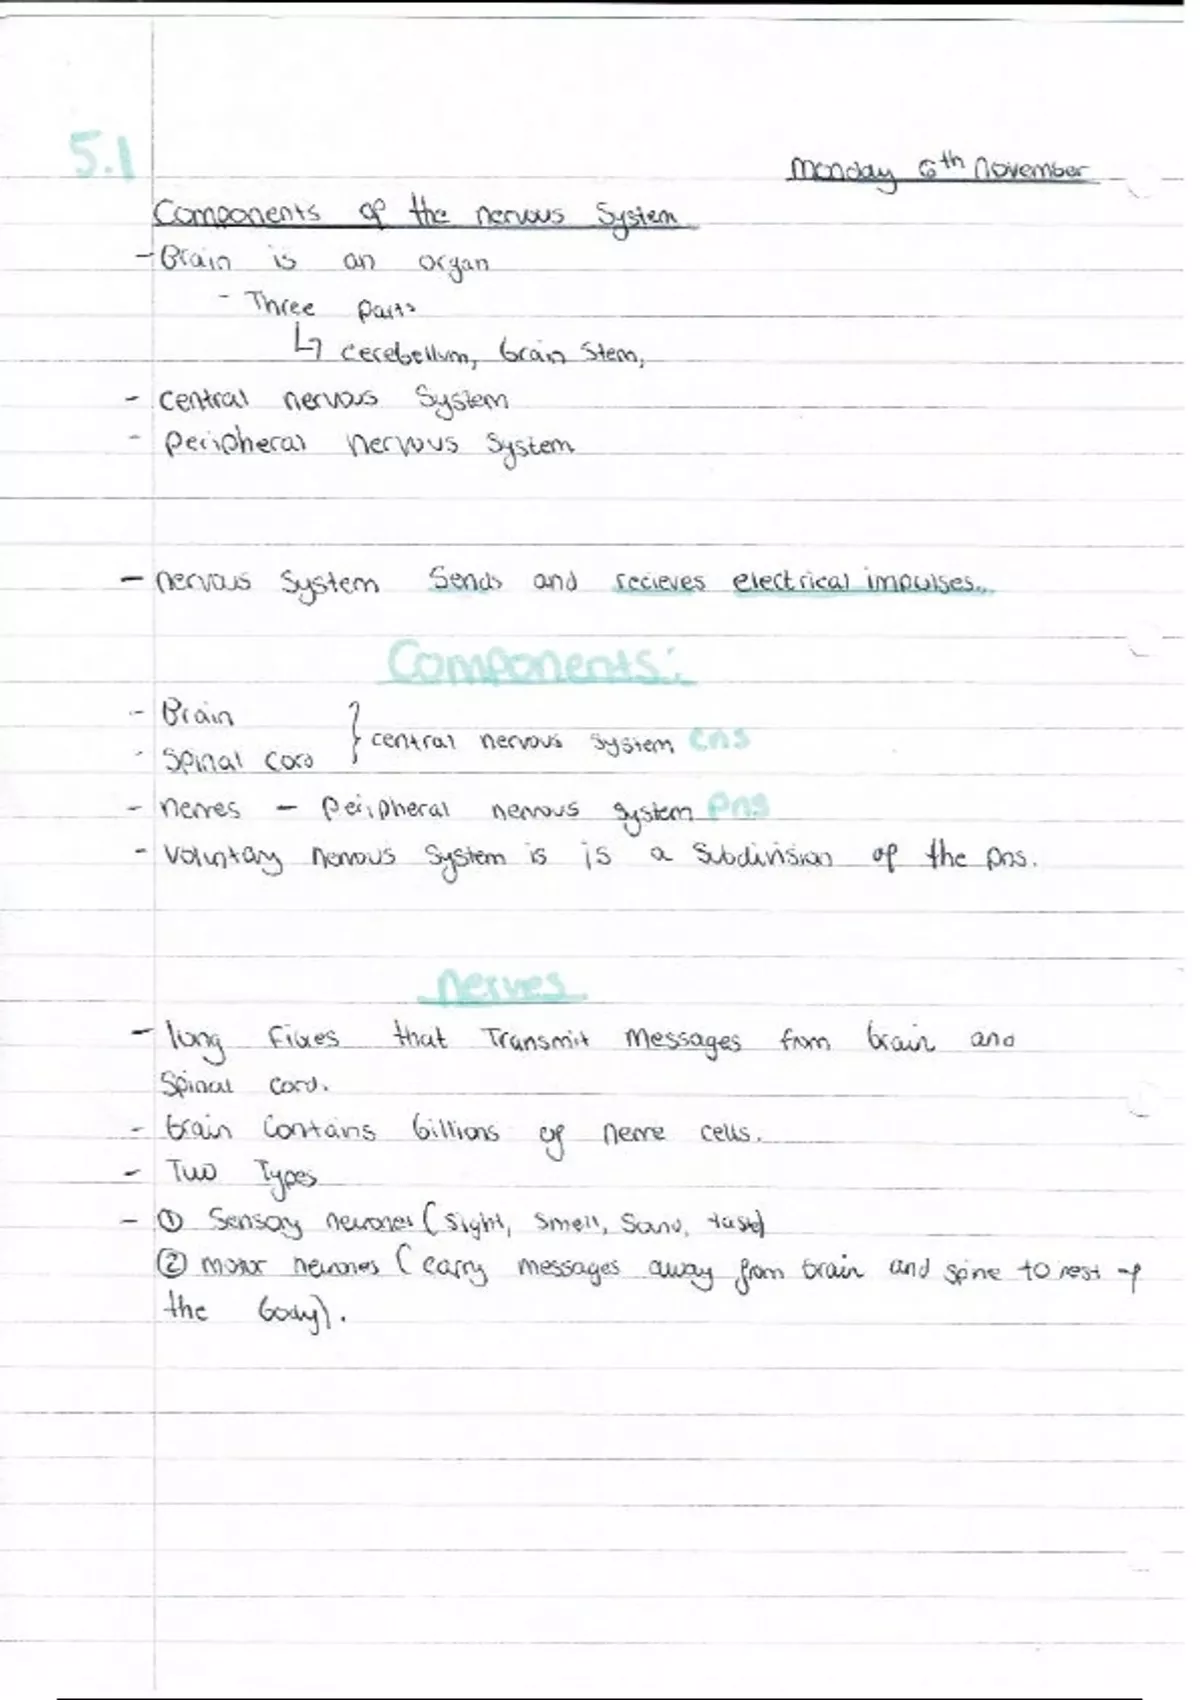 5.1
Monday 6th November
Components of the nervous System
- Brain is an organ
- Three parts
↳ cerebellum, brain stem,
- central nervous System
- peripheral nervous System
- nervous System Sends and recieves electrical impulses.
Components:
- Brain
- Spinal cord } central nervous system cns
- nerves - peripheral nervous system pns
- voluntary nervous System is is a Subdivision of the pns.
nerves
- long fibres that Transmit Messages from brain and
Spinal cord.
- brain Contains billions of nerve cells.
- Two Types
- ① Sensory neurones (Sight, Smell, Sound, taste)
② motor neurones (carry messages away from brain and spine to rest of
the body).